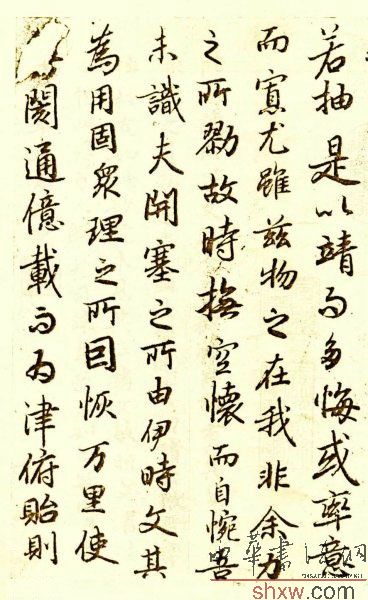 若抽是以靖而多悔或率意
而寡尤雖茲物之在我非余力
之所勠故時撫空懷而自惋吾
未識夫開塞之所由伊時文其
為用固眾理之所因恢万里使
閡通億載而為津俯貽則
shxw.com